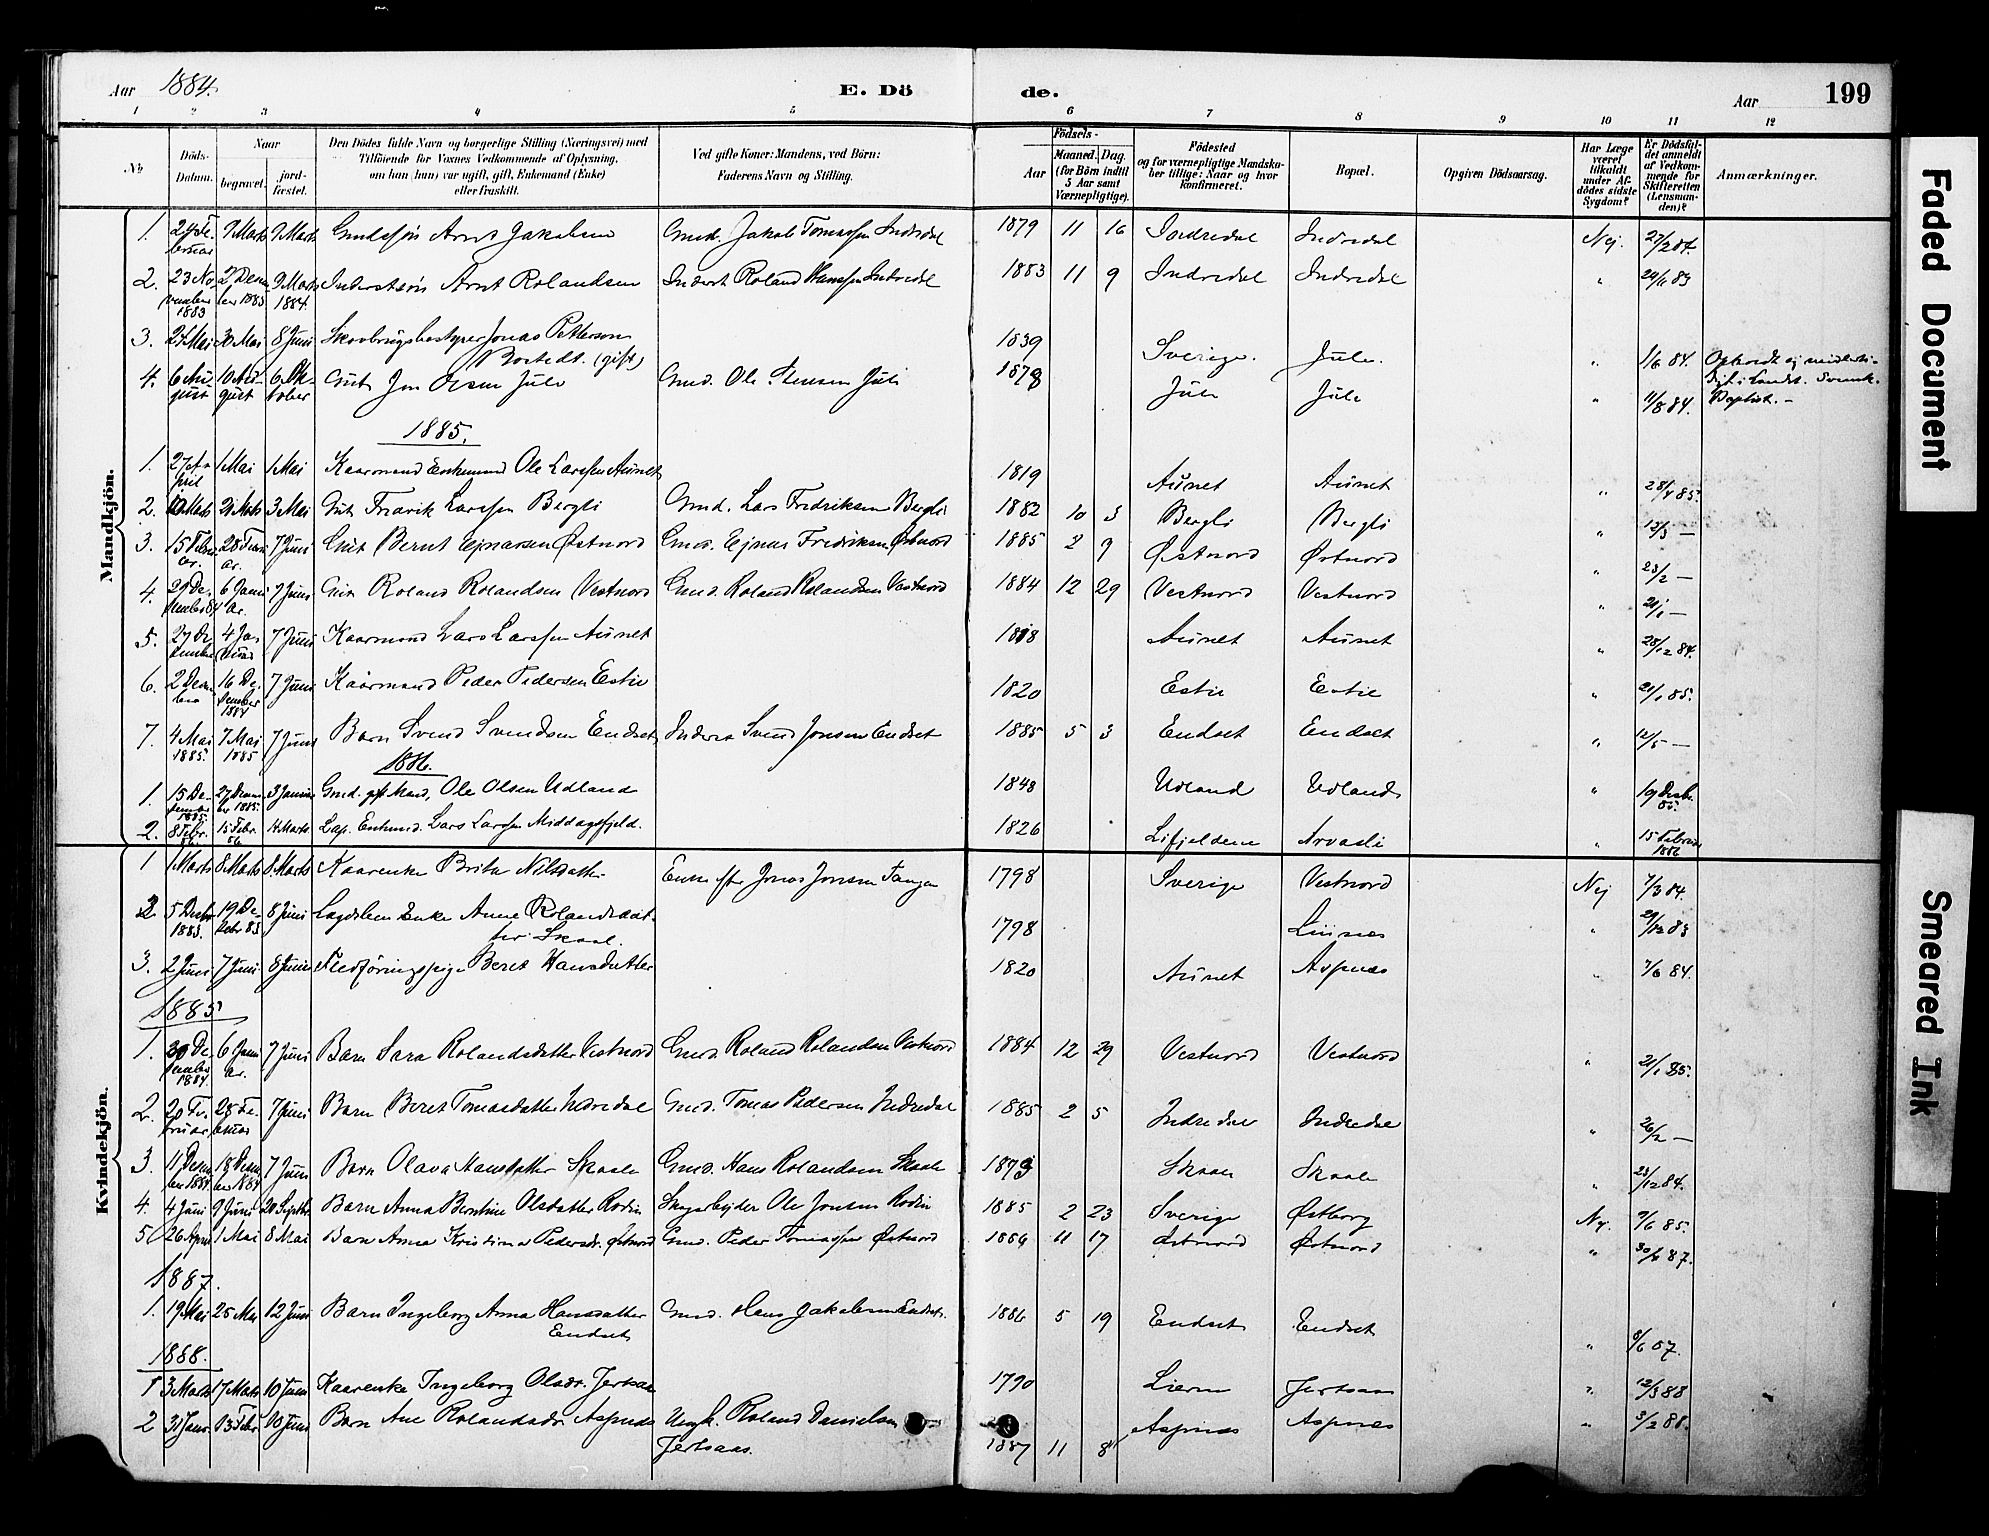 Aar 1884. E. Dö de. Aar 199
1 2 3 4 5 6 7 8 9 10 11 12
No
Döds-Datum.
Naar
begravet.
jord-fæstet.
Den Dödes fulde Navn og borgerlige Stilling (Næringsvei) med
Tilföiende for Voxnes Vedkommende af Oplysning,
om han (hun) var ugift, gift, Enkemand (Enke)
eller fraskilt.
Ved gifte Koner: Mandens, ved Börn:
Faderens Navn og Stilling.
Födsels-
Aar Maaned. Dag.
(for Börn indtil
5 Aar samt
Værnepligtige).
Födested
og for værnepligtige Mandska-
ber tillige: Naar og hvor
konfirmeret.
Bopæl.
Opgiven Dödsaarsag.
Har Læge
været
tilkaldt
under Af-
dödes sidste
Sygdom?
Er Dödsfal-
det anmeldt
af Vedkom-
mende for
Skifteretten
(Lensman-
den)?
Anmærkninger.
Mandkjön.
1. 9 Marts 9 Marts Arnt Jakobsen Gmd. Jakob Tomassen Indredal 1879 11 16 Indredal Indredal Nej. 27/2 84.
2. 23 No-vember 1883 2 Decem-ber 1883 9 Marts 1884. Arnt Rolandsen Inderst Roland Hanssen Indredal 1883 11 9 Indredal Indredal " 29/11 83
3. 30 Mai 8 Juni Skovbrugsbestyrer Jonas Petterson
Bostedt. (gift) 1839 Sverige. Jule. " 1/6 84.
4. 6 Au-gust 10 Au-gust 6 Ok-tober Gut Jon Olsen Jule Gmd. Ole Jule 1878 Jule Jule " 11/8 84. Baptist. –
1885.
1. 27 A-pril 1 Mai 1 Mai Kaarmand Enkemand Ole Larssen Aunet 1819 Aunet Aunet " 28/4 85.
2. 21 Mts 3 Mai Gut Fredrik Larssen Bergli Gmd. Lars Fredriksen Bergli 1882 10 3 Bergli Bergli " 12/3 –
3. 15 Febru-ar. 28 Febru-ar. 7 Juni Gut Bernt Ejnarsen Østnord Gmd. Ejnar Fredriksen Østnord 1885 2 9 Østnord Østnord " 23/2 –
4. 29 De-cember 84 6 Janu-ar. 7 Juni Gut Roland Rolandsen Vestnord Gmd. Roland Rolandsen Vestnord 1884 12 29 Vestnord Vestnord " 21/1 –
5. 27 De-cember 4 Jan-uar 7 Juni Kaarmand Lars Larssen Aunet 1818 Aunet Aunet " 28/12 84.
6. 2 Decem-ber 16 De-cember 1884 7 Juni Kaarmand Peder Pedersen Estie 1820 Estie Estie " 21/1 85.
7. 4 Mai 1885. 7 Mai 1885 7 Juni Barn Svend Svendsen Endset Inderst Svend Jonsen Endset 1885 5 3 Endset Endset " 12/5 –
1886.
1. 15 De-cember 1885. 27 Decem-ber 1885. 3 Januar Gmd. gift Mand, Ole Olsen Udland 1848 Udland Udland " 19 Decbr. 85.
2. 8 Febr. 86. 15 Febr. 86 14 Marts Lap. Enkmd. Lars Larssen Middagsfjeld. 1826 Lifjeldene Arvasli " 15 Februar 1886
Kvindekjön.
1 1 Marts 8 Marts 8 Marts Kaarenke Brita Nilsdatter Enke efter Jonas Jonsen Tangen 1798 Sverige Vestnord Nej 7/3 84.
2 5 Decbr 1883. 19 De-cbr 83 8 Juni Lægdslem Enke Anne Rolandsdat-
ter Skaal. 1798 Linnæs " 29/12 83
3. 2 Juni 7 Juni 8 Juni Fledföringspige Beret Hansdatter 1820 Aunet Aspnæs " 7/6 84.
1885
1. 30 De-cember 1884. 6 Janu-ar. 7 Juni Barn Sara Rolandsdatter Vestnord Gmd. Roland Rolandsen Vestnord 1884 12 29 Vestnord Vestnord " 21/1 85.
2. 20 Fe-bruar 28 Fe-bruar 7 Juni Barn Beret Tomasdatter Indredal Gmd. Tomas Pedersen Indredal 1885 2 5 Indredal Indredal " 26/2 –
3. 11 Decem-ber 1884. 18 Decem-ber 1884 7 Juni Barn Olava Hansdatter Skaale Gmd. Hans Rolandsen Skaale 1879 Skaale Skaale " 23/12 84.
4. 4 Juni 9 Juni 20 Septbr. Barn Anna Berntine Olsdatter Rodin Ole Jonsen Rodin 1885 2 23 Sverige Østborg Nej. 9/6 85.
5 26 April 1 Mai 8 Mai Barn Anna Kristina Pedersdr. Østnord Gmd. Peder Tomassen Østnord 1886 11 17 Østnord Østnord " 30/4 87.
1887.
1. 19 Mai 25 Mai 12 Juni Barn Ingeborg Anna Hansdatter
Endset Gmd. Hans Jakobsen Endset. 1886 5 19 Endset Endset " 8/6 87.
1888.
1 3 Marts 17 Marts 10 Juni Kaarenke Ingeborg Olsdr. Jertsaas 1790 Lierne Jertsaas " 12/3 88
2 31 Janr. 13 Febr 10 Juni Barn Ane Rolandsdr Aspnæs Ungk. Roland Danielsen
Jertsaas. 1887 11 8 Aspnæs Aspnæs " 3/2 88.
Faded Document
Smeared Ink